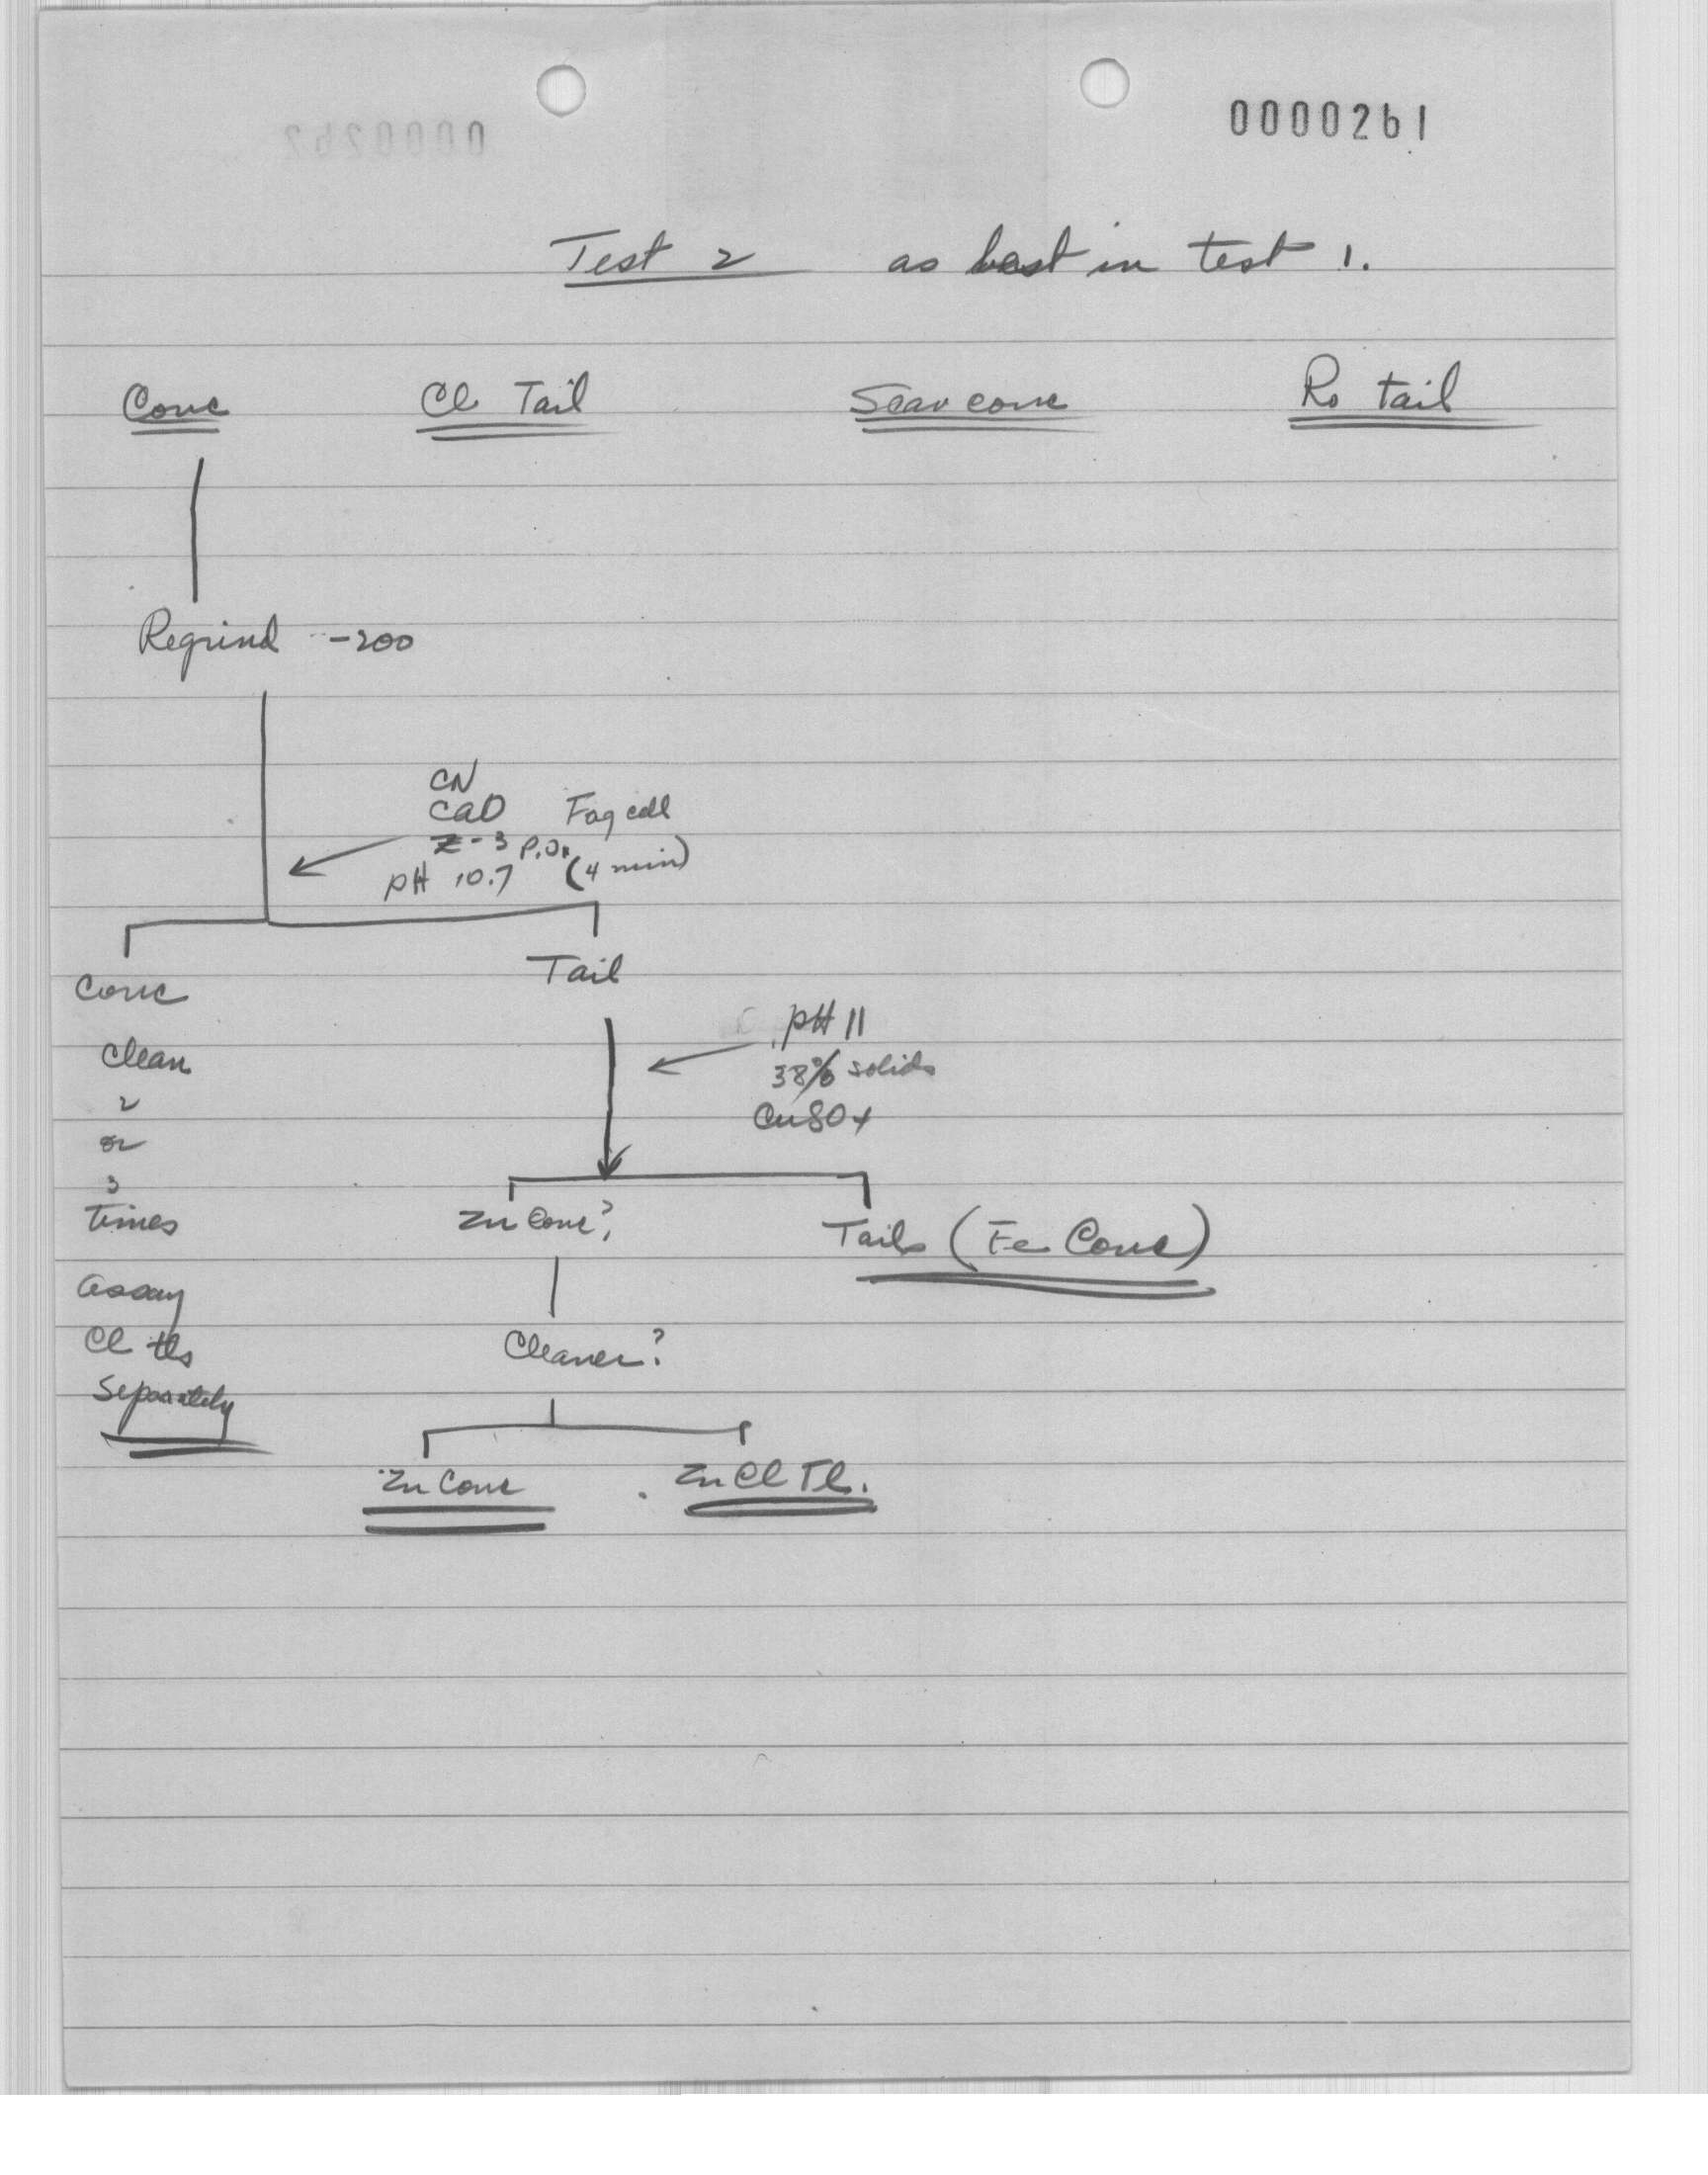 0000261
Test 2 as best in test 1.
Conc Cl Tail Scav conc Ro tail
Regrind -200
CN
CaO Fag cell
Z-3 P.O. (4 min)
pH 10.7
Conc Tail
pH 11
Clean 38% solids
2 CuSO4
or
3
times Zn Conc? Tails (Fe Conc)
assay
Cl tls Cleaner?
Separately
Zn Conc Zn Cl Tl.